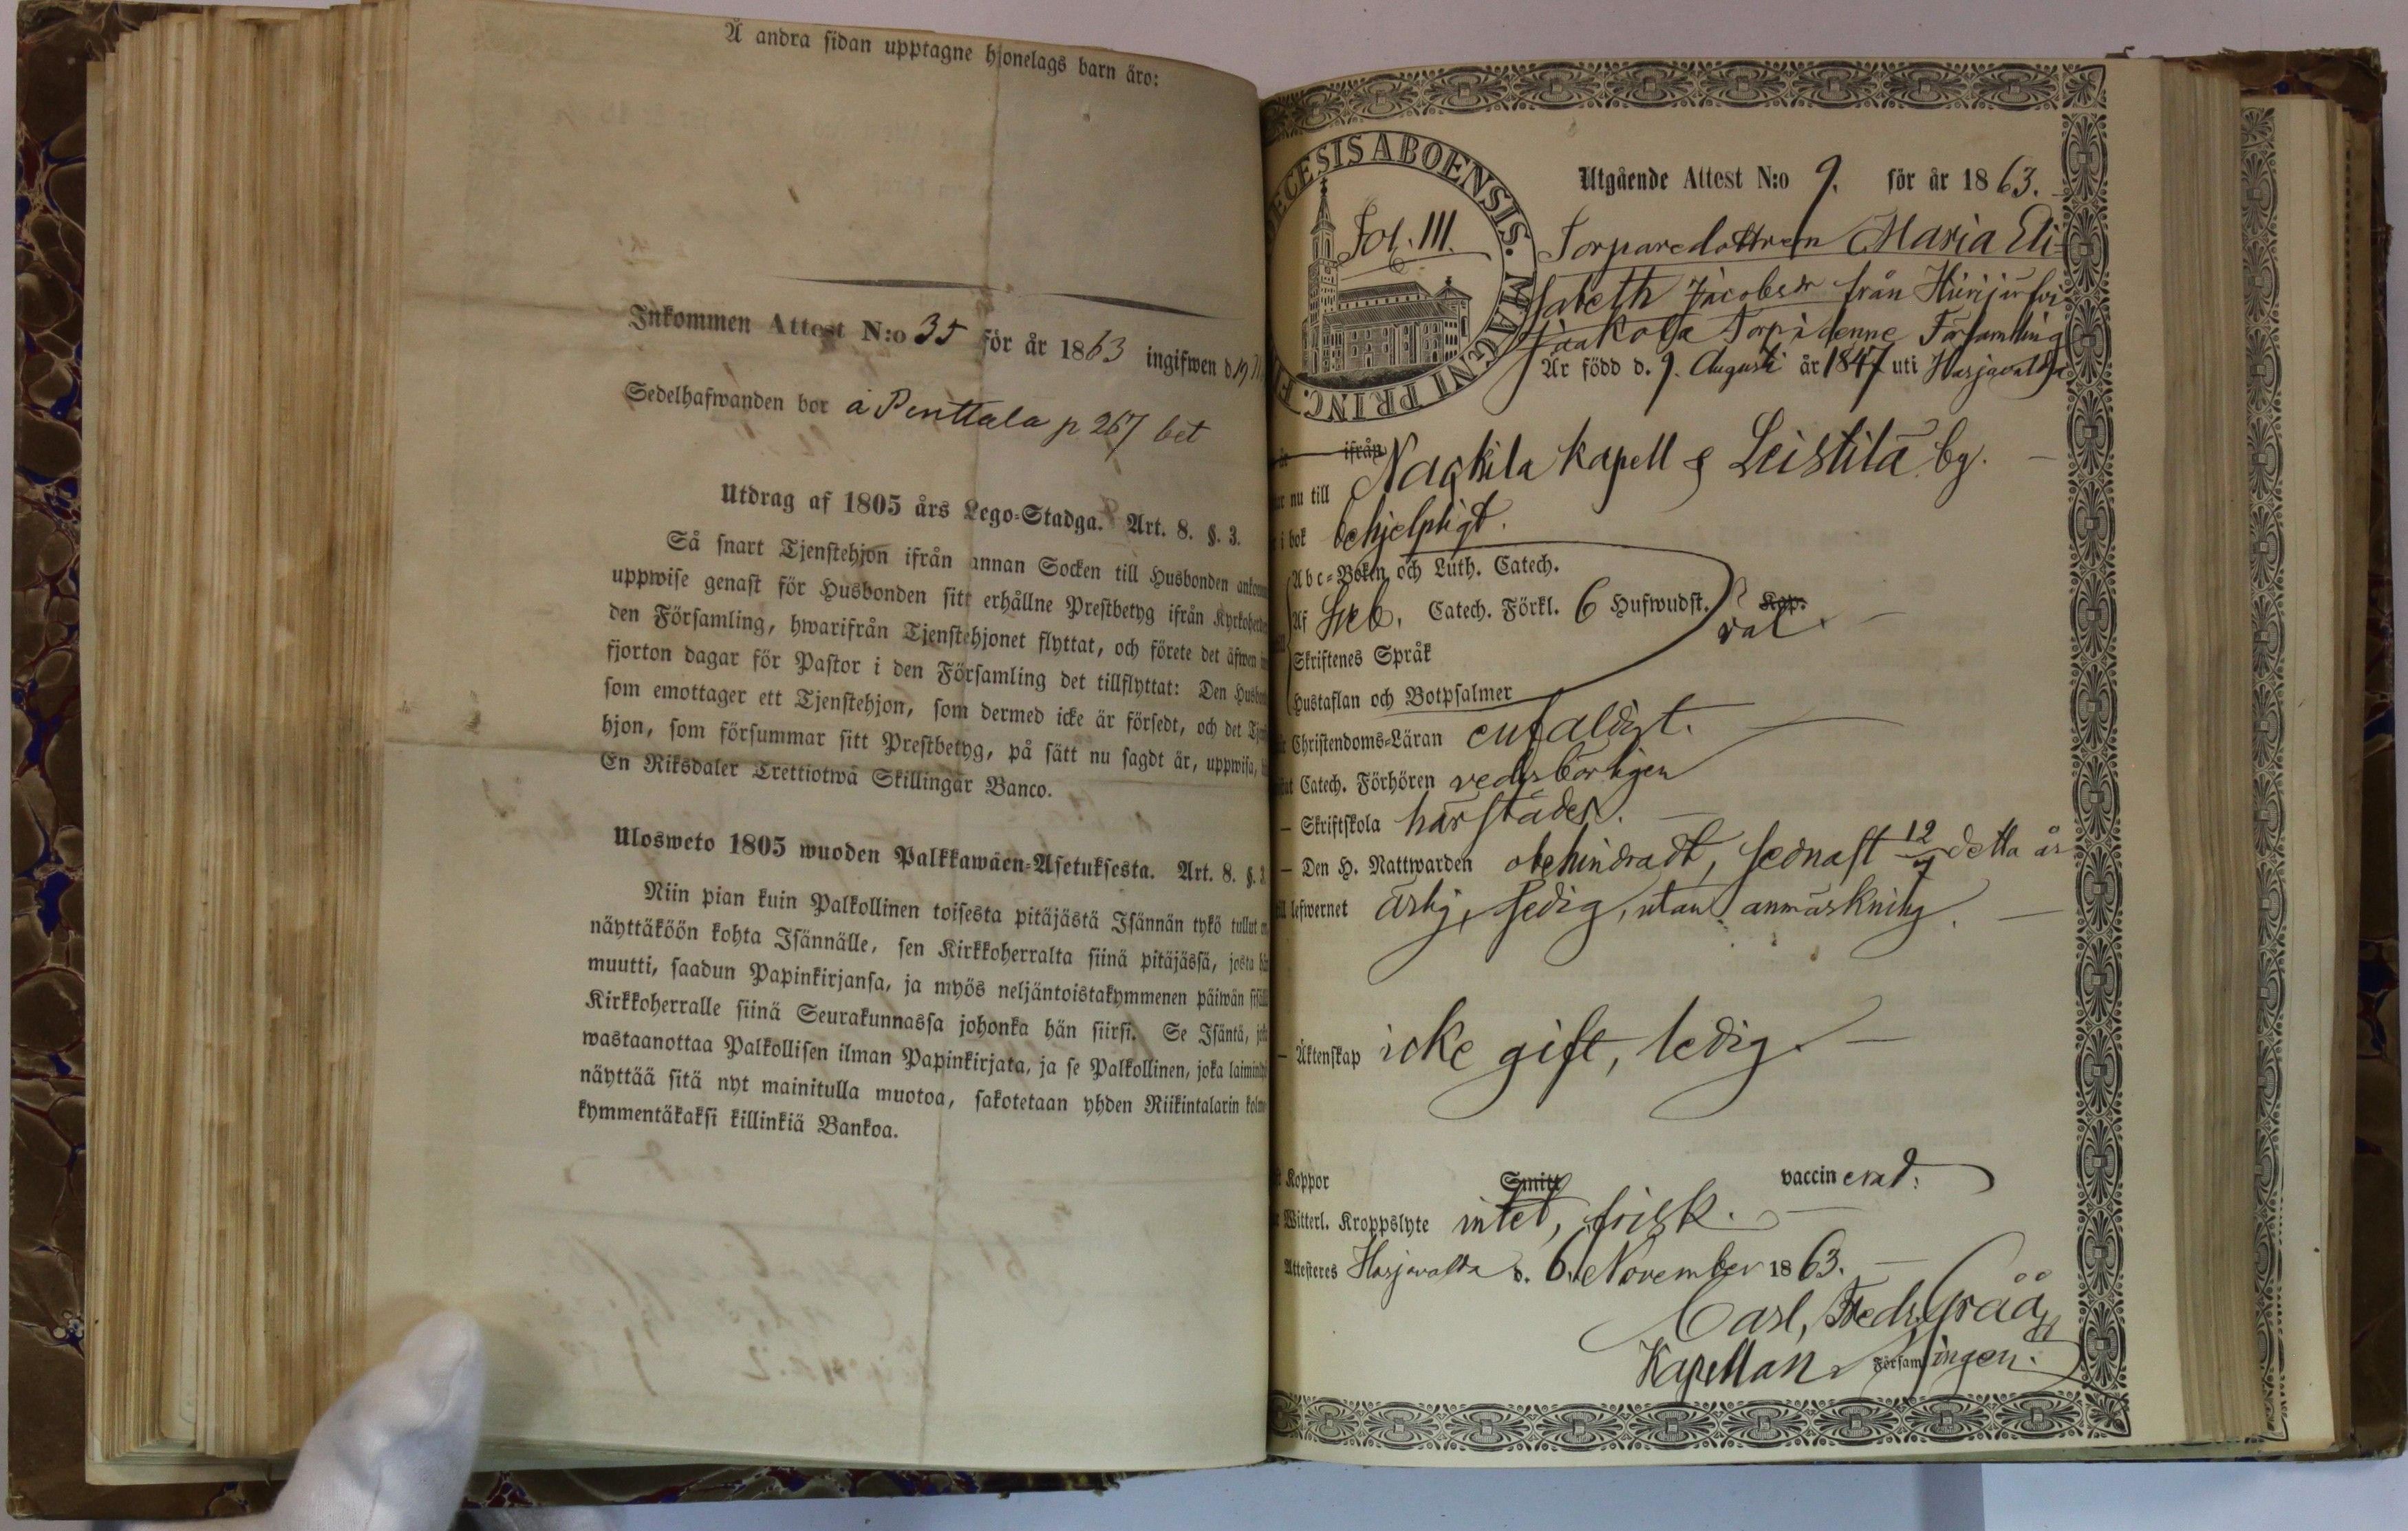 Å andra sidan upptagne hjonelags barn äro:
Inkommen Attest N:o 35 för år 1863 ingifwen d 19
Sedelhafwanden bor å Penttala p 267 bet
Utdrag af 1805 års Lego-Stadga. Art. 8. §. 3.
Så snart Tjenstehjon ifrån annan Socken till Husbonden
uppwise genast för Husbonden sitt erhållne Prestbetyg ifrån
den Församling, hwarifrån Tjenstehjonet flyttat, och förete det äfwen
fjorton dagar för Pastor i den Församling det tillflyttat: Den
som emottager ett Tjenstehjon, som dermed icke är försedt, och det
hjon, som försummar sitt Prestbetyg, på sätt nu sagdt är, uppwisa,
En Riksdaler Trettiotwå Skillingar Banco.
Ulosweto 1805 wuoden Palkkawäen-Asetuksesta. Art. 8. §. 3.
Niin pian kuin Palkollinen toisesta pitäjästä Isännän tykö tullut
näyttäköön kohta Isännälle, sen Kirkkoherralta siinä pitäjässä, josta
muutti, saadun Papinkirjansa, ja myös neljäntoistakymmenen päiwän
Kirkkoherralle siinä Seurakunnassa johonka hän siirsi. Se Isäntä,
wastaanottaa Palkollisen ilman Papinkirjata, ja se Palkollinen, joka
näyttää sitä nyt mainitulla muotoa, sakotetaan yhden Riikintalarin
kymmentäkaksi killinkiä Bankoa.
ECESIS ABOENSIS. MAGNI PRINC. F
Fol. 111.
Utgående Attest N:o 9. för år 1863.
Torparedottren Maria Eli-
sabeth Jacobsdr från
Jaakola Torp i denne Församling
Är född d. 9. Augusti år 1847 uti Harjavalta
ifrån
nu till Nackila Kapell & Leistilä by.
i bok behjelpligt.
Abc-Boken och Luth. Catech.
Af Sveb. Catech. Förkl. 6 Hufwudst. Kap.
väl.
Skriftenes Språk
Hustaflan och Botpsalmer
Christendoms-Läran enfaldigt.
Catech. Förhören vederbörligen
— Skriftskola härstädes.
— Den H. Nattwarden obehindradt, sednast 12/7 detta år
lefwernet ärlig, sedig, utan anmärkning.
— Äktenskap icke gift, ledig.
Koppor Smitt vaccinerad.
Witterl. Kroppslyte intet, frisk.
Attesteres Harjavalta d. 6. November 1863.
Carl, Fredr. Gråå
Kapellan Församlingen.